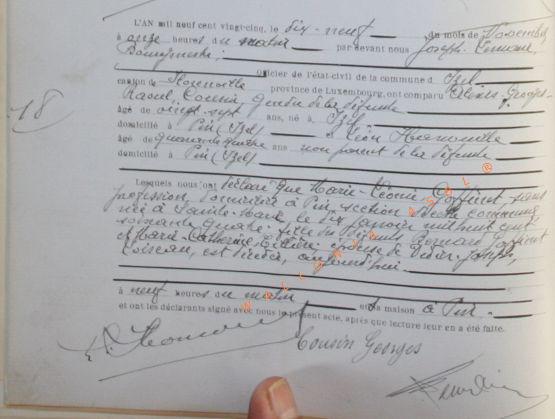 18
L'AN mil neuf cent vingt-cinq, le dix-neuf du mois de Novembre
à onze heures du matin par devant nous Joseph
Bourgmestre
officier de l'état-civil de la commune d'Izel
canton de Florenville province de Luxembourg, ont comparu Georges-
Raoul Cousin, gendre de la défunte
âgé de vingt-sept ans, né à Izel
domicilié à Pin (Izel) et Léon
âgé de quarante-quatre ans non parent de la défunte
domicilié à Pin (Izel)
Lesquels nous ont déclaré que Marie-Léonie sans
profession, domiciliée à Pin, section de cette commune,
née à Sainte-Marie le dix janvier mil huit cent
soixante quatre, fille de
et Marie-Catherine épouse de Joseph,
est décédée, aujourd'hui
à neuf heures du matin en sa maison à Pin
et ont les déclarants signé avec nous le présent acte, après que lecture leur en a été faite.
Cousin Georges